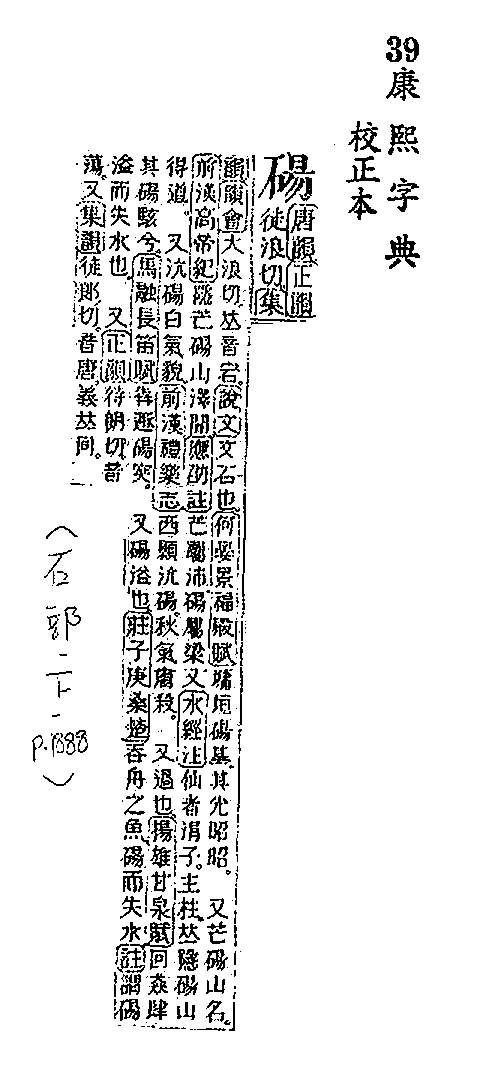 39 康熙字典
校正本
碭 唐韻正韻
徒浪切集
韻韻會大浪切𠀤音宕。說文文石也何晏景福殿賦墉垣碭基其光昭昭。又芒碭山名。
前漢高帝紀隱芒碭山澤閒應劭註芒屬沛碭屬梁又水經注仙者涓子。主柱𠀤隱碭山
得道。又沆碭白氣貌前漢禮樂志西顥沆碭。秋氣肅殺。又過也。揚雄甘泉賦回猋肆
其碭駭兮馬融長笛賦犇遯碭突。又碭溢也莊子庚桑楚吞舟之魚碭而失水註謂碭
溢而失水也。又正韻待朗切音
蕩。又集韻徒郎切。音唐義𠀤同。
(石部-下-p.1888)